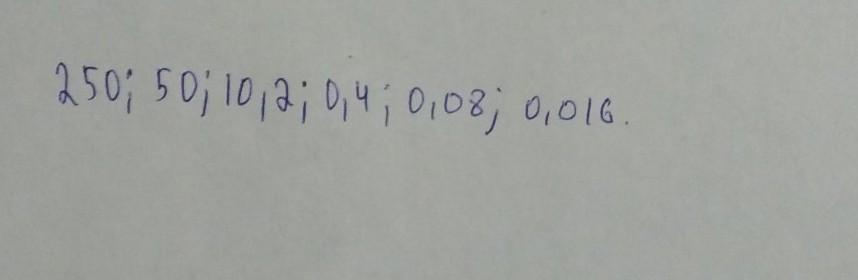 250; 50; 10,2; 0,4; 0,08; 0,016.